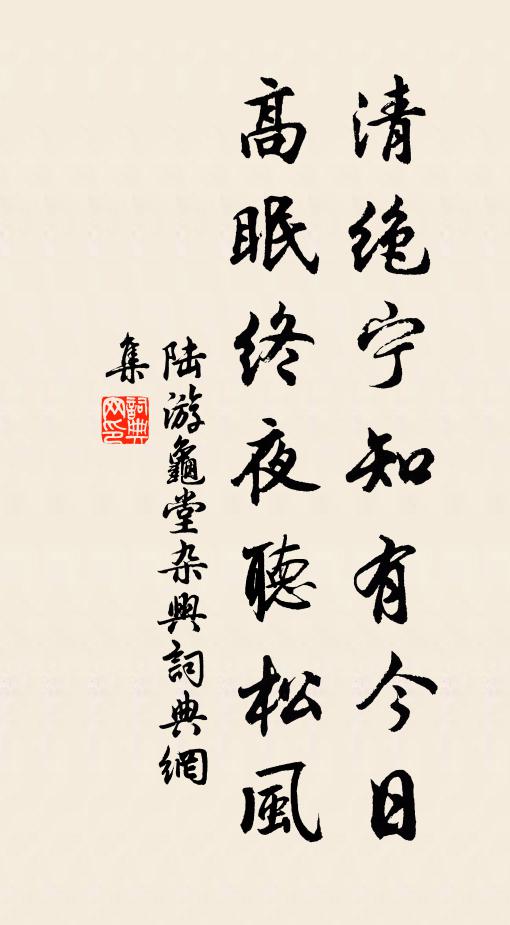 清絶宁知有今日
高眠终夜聴松風
陆游龜堂杂興詞典網
集
詞典网印